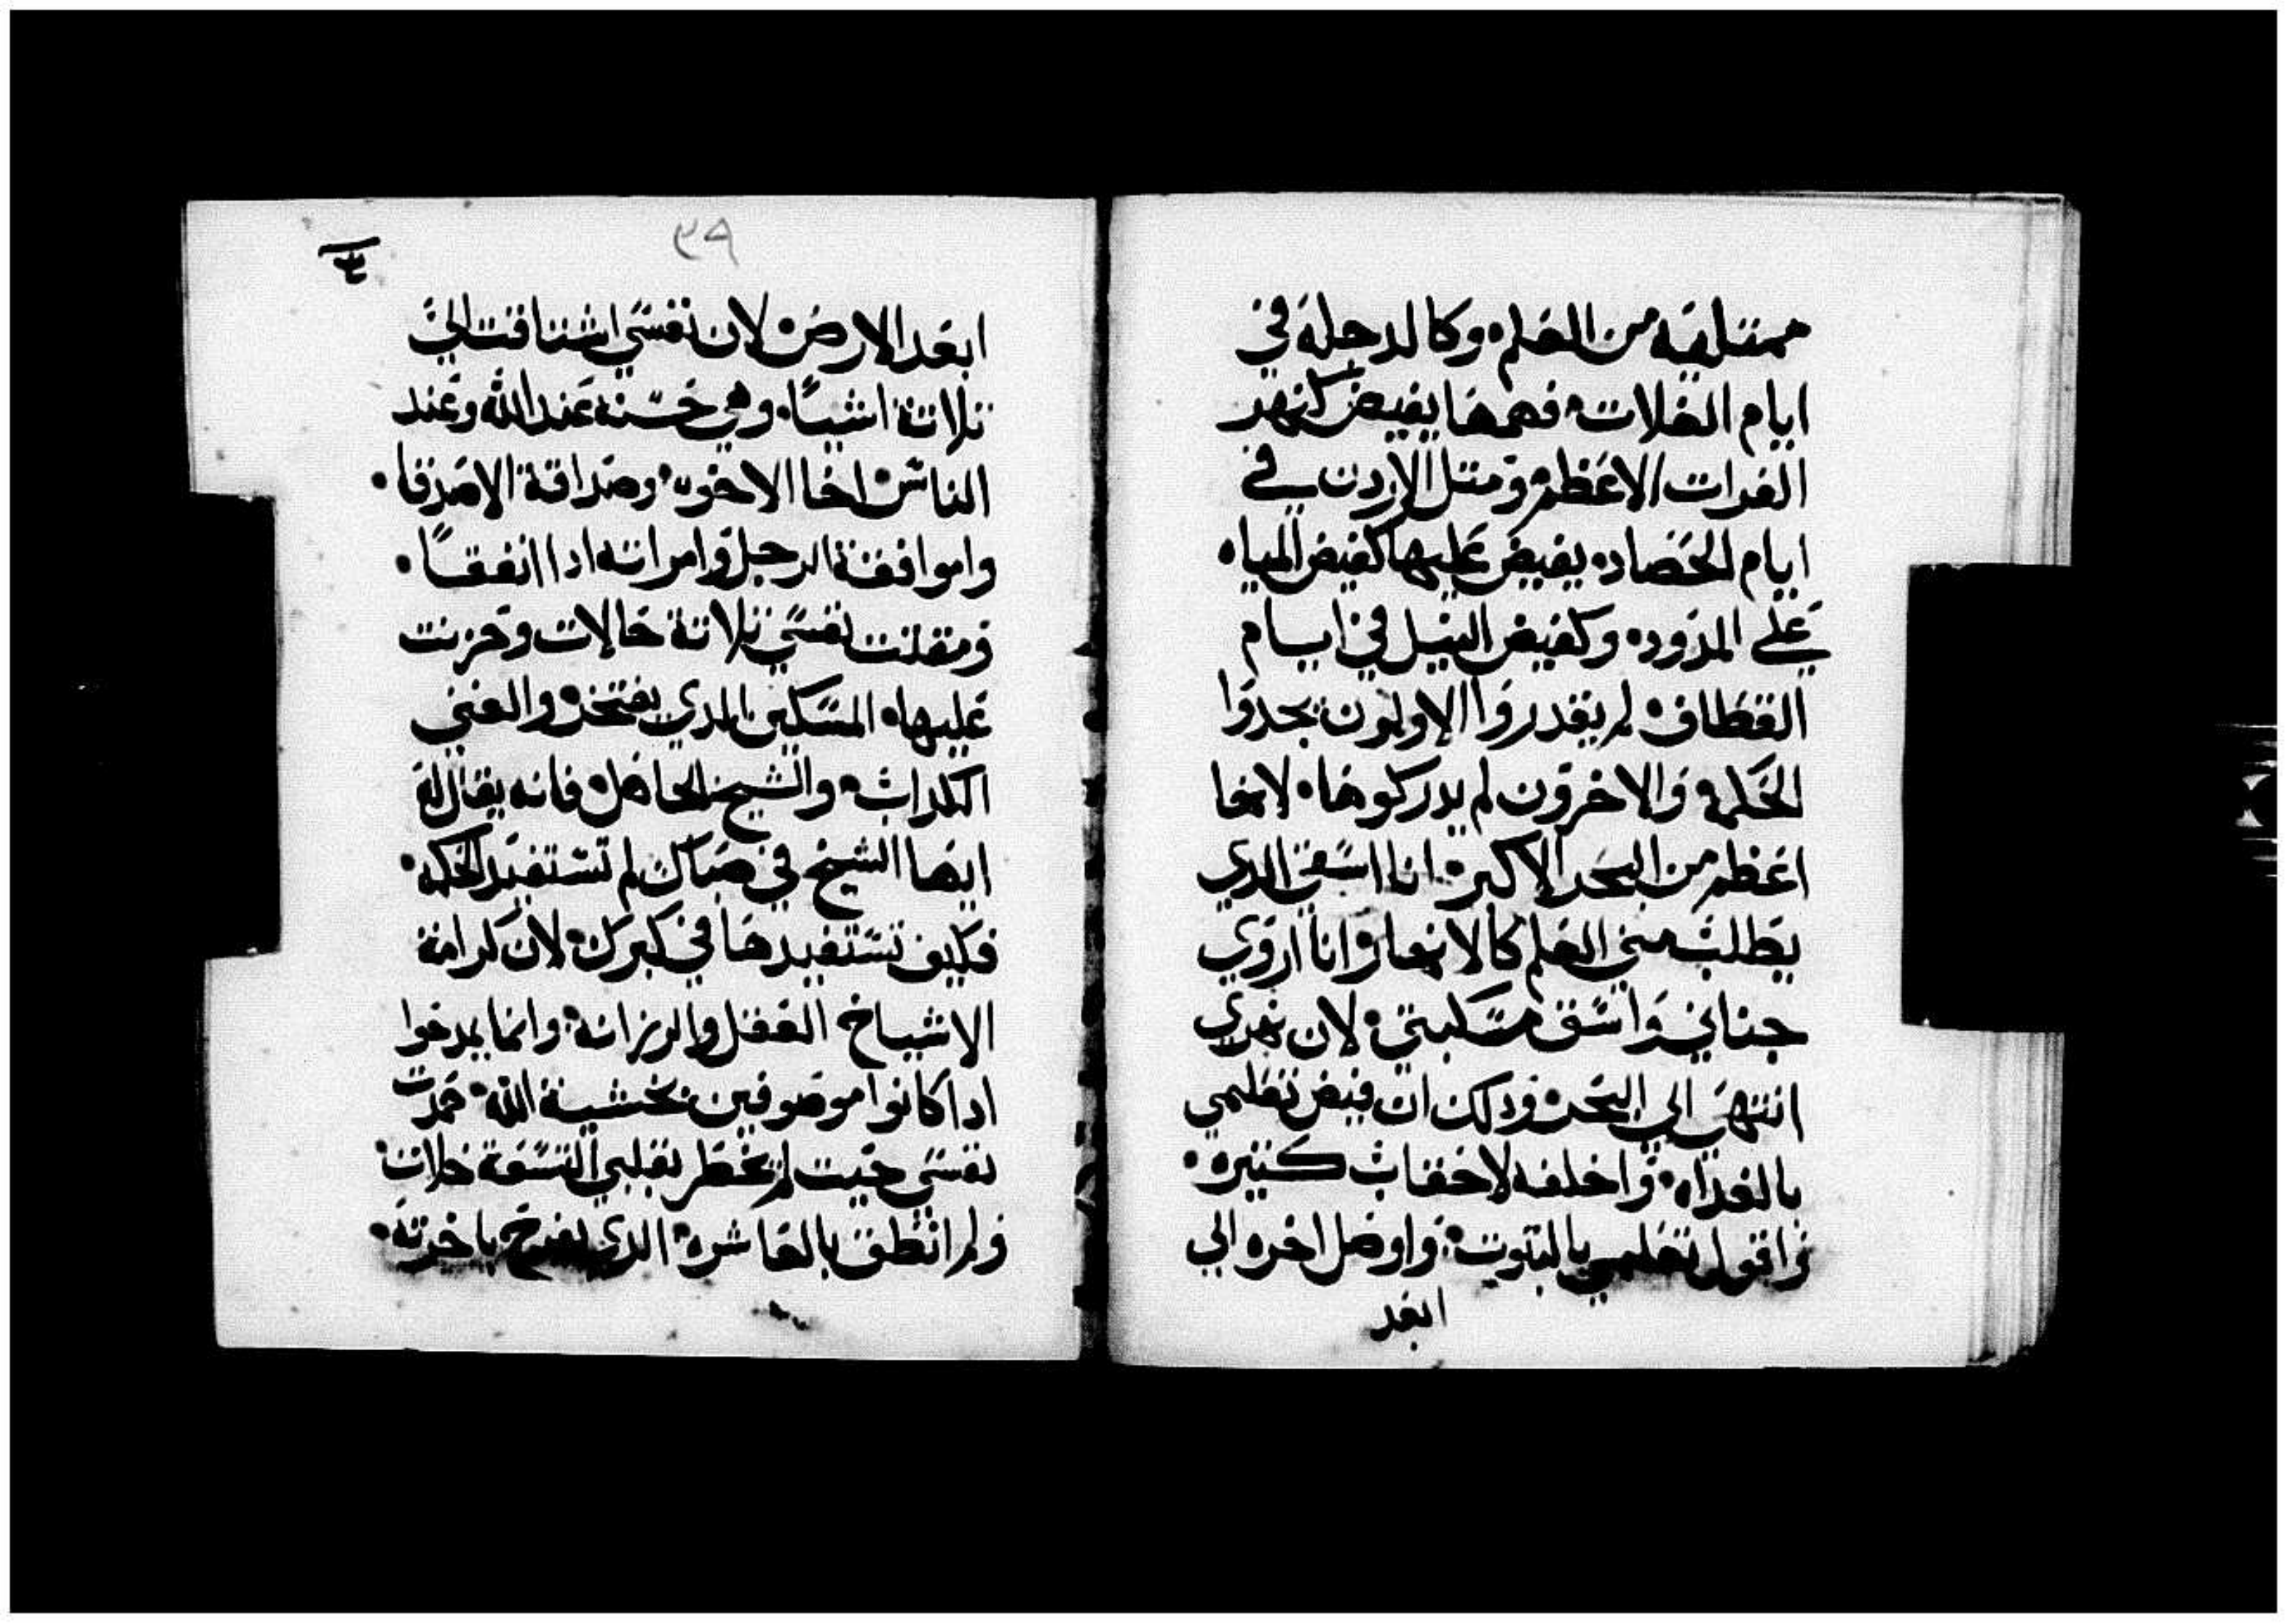 ممتليه من العلم. وكالدجلة في
ايام الغلات. فهمها يفيض كنهر
الفرات الاعظم. ومتل الاردن في
ايام الحصاد. يفيض عليها كفيض المياه
علي المدود. وكفيض النيل في ايام
القطاف. لم يقدروا الاولون يجدوا
الحكمه والاخرون لم يدركوها. لانها
اعظم من البحر الاكبر. انا اسقي الدي
يطلب مني العلم كالانهار وانا اروي
جناني واسق مسكبتي. لان نهري
انتهي الي البحر. ودلك ان فيض تعليمي
بالغداه. واخلفه لاحقاب كتيره.
واقول تعليمي بالبتوت. واوصل اخره الي
ابعد
٣٩
ابعد الارض. لان نفسي اشتاقت الي
تلاتة اشيا. وهي حسنه عند الله وعند
الناس. اخا الاخوه. وصداقة الاصدقا.
واموافقة الرجل وامراته ادا اتفقا.
ومقتت نفسي تلاتة حالات وحزنت
عليها. المسكين الدي يفتخر. والغني
الكداب. والشيخ الجاهل. فانه يقال له
ايها الشيخ في صباك لم تستفيد الحكمه.
فكيف تستفيدها في كبرك. لان كرامة
الاشياخ العقل والرزانه. وانما يمدحوا
ادا كانوا موصوفين بخشية الله. حمدت
نفسي حيت لم يخطر بقلبي التسعة خلات.
ولم انطق بالعاشره. الدي يفرح باخرته.